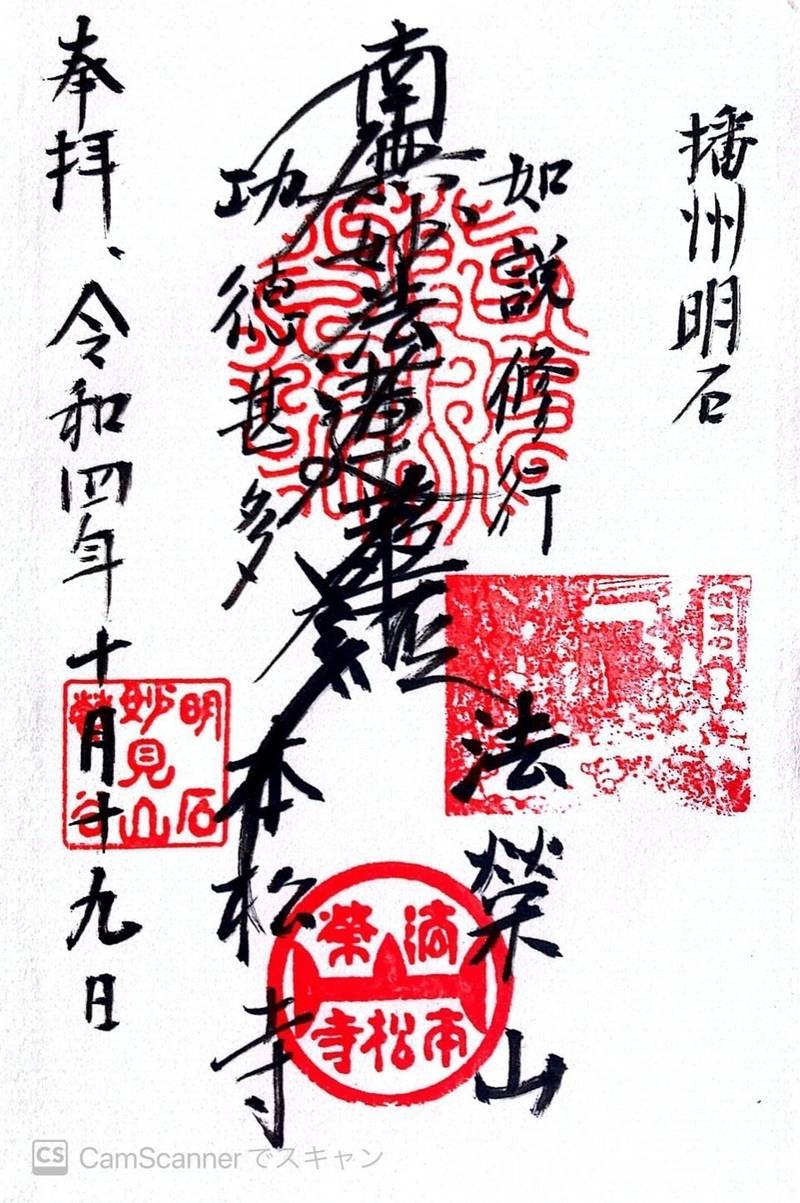 播州明石
如説修行
南無妙法蓮華経
功徳甚多
法榮山
本松寺
奉拝、令和四年十月十九日
明石
妙見山
法榮
本松寺
CS CamScannerでスキャン